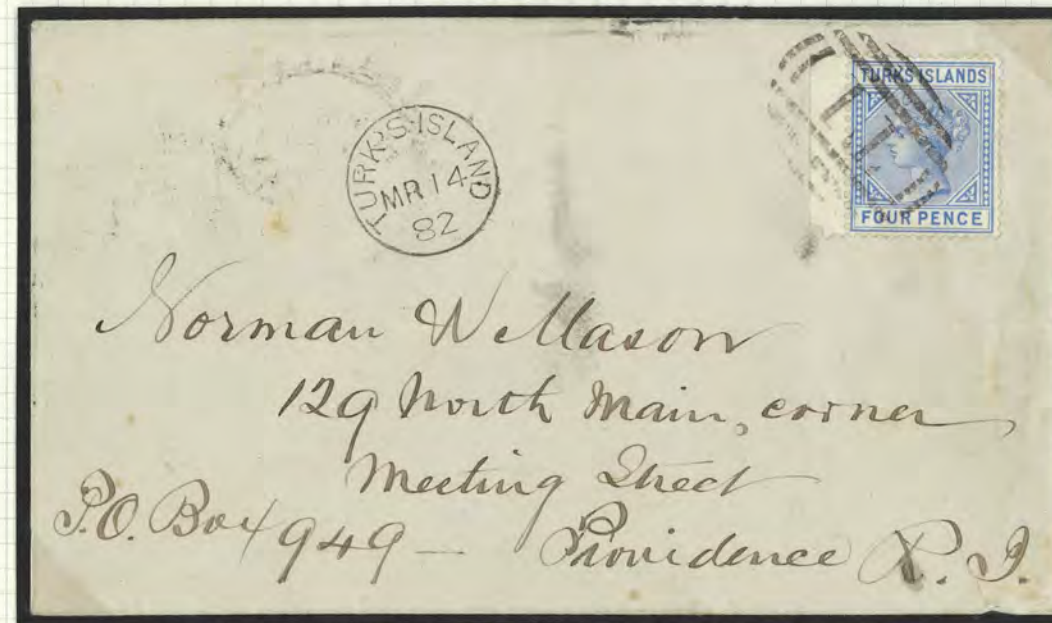 TURKS ISLANDS
FOUR PENCE
TURK'S-ISLAND
MR 14
82
Norman W Mason
129 North Main, corner
Meeting Street
P.O. Box 949 — Providence R. I.